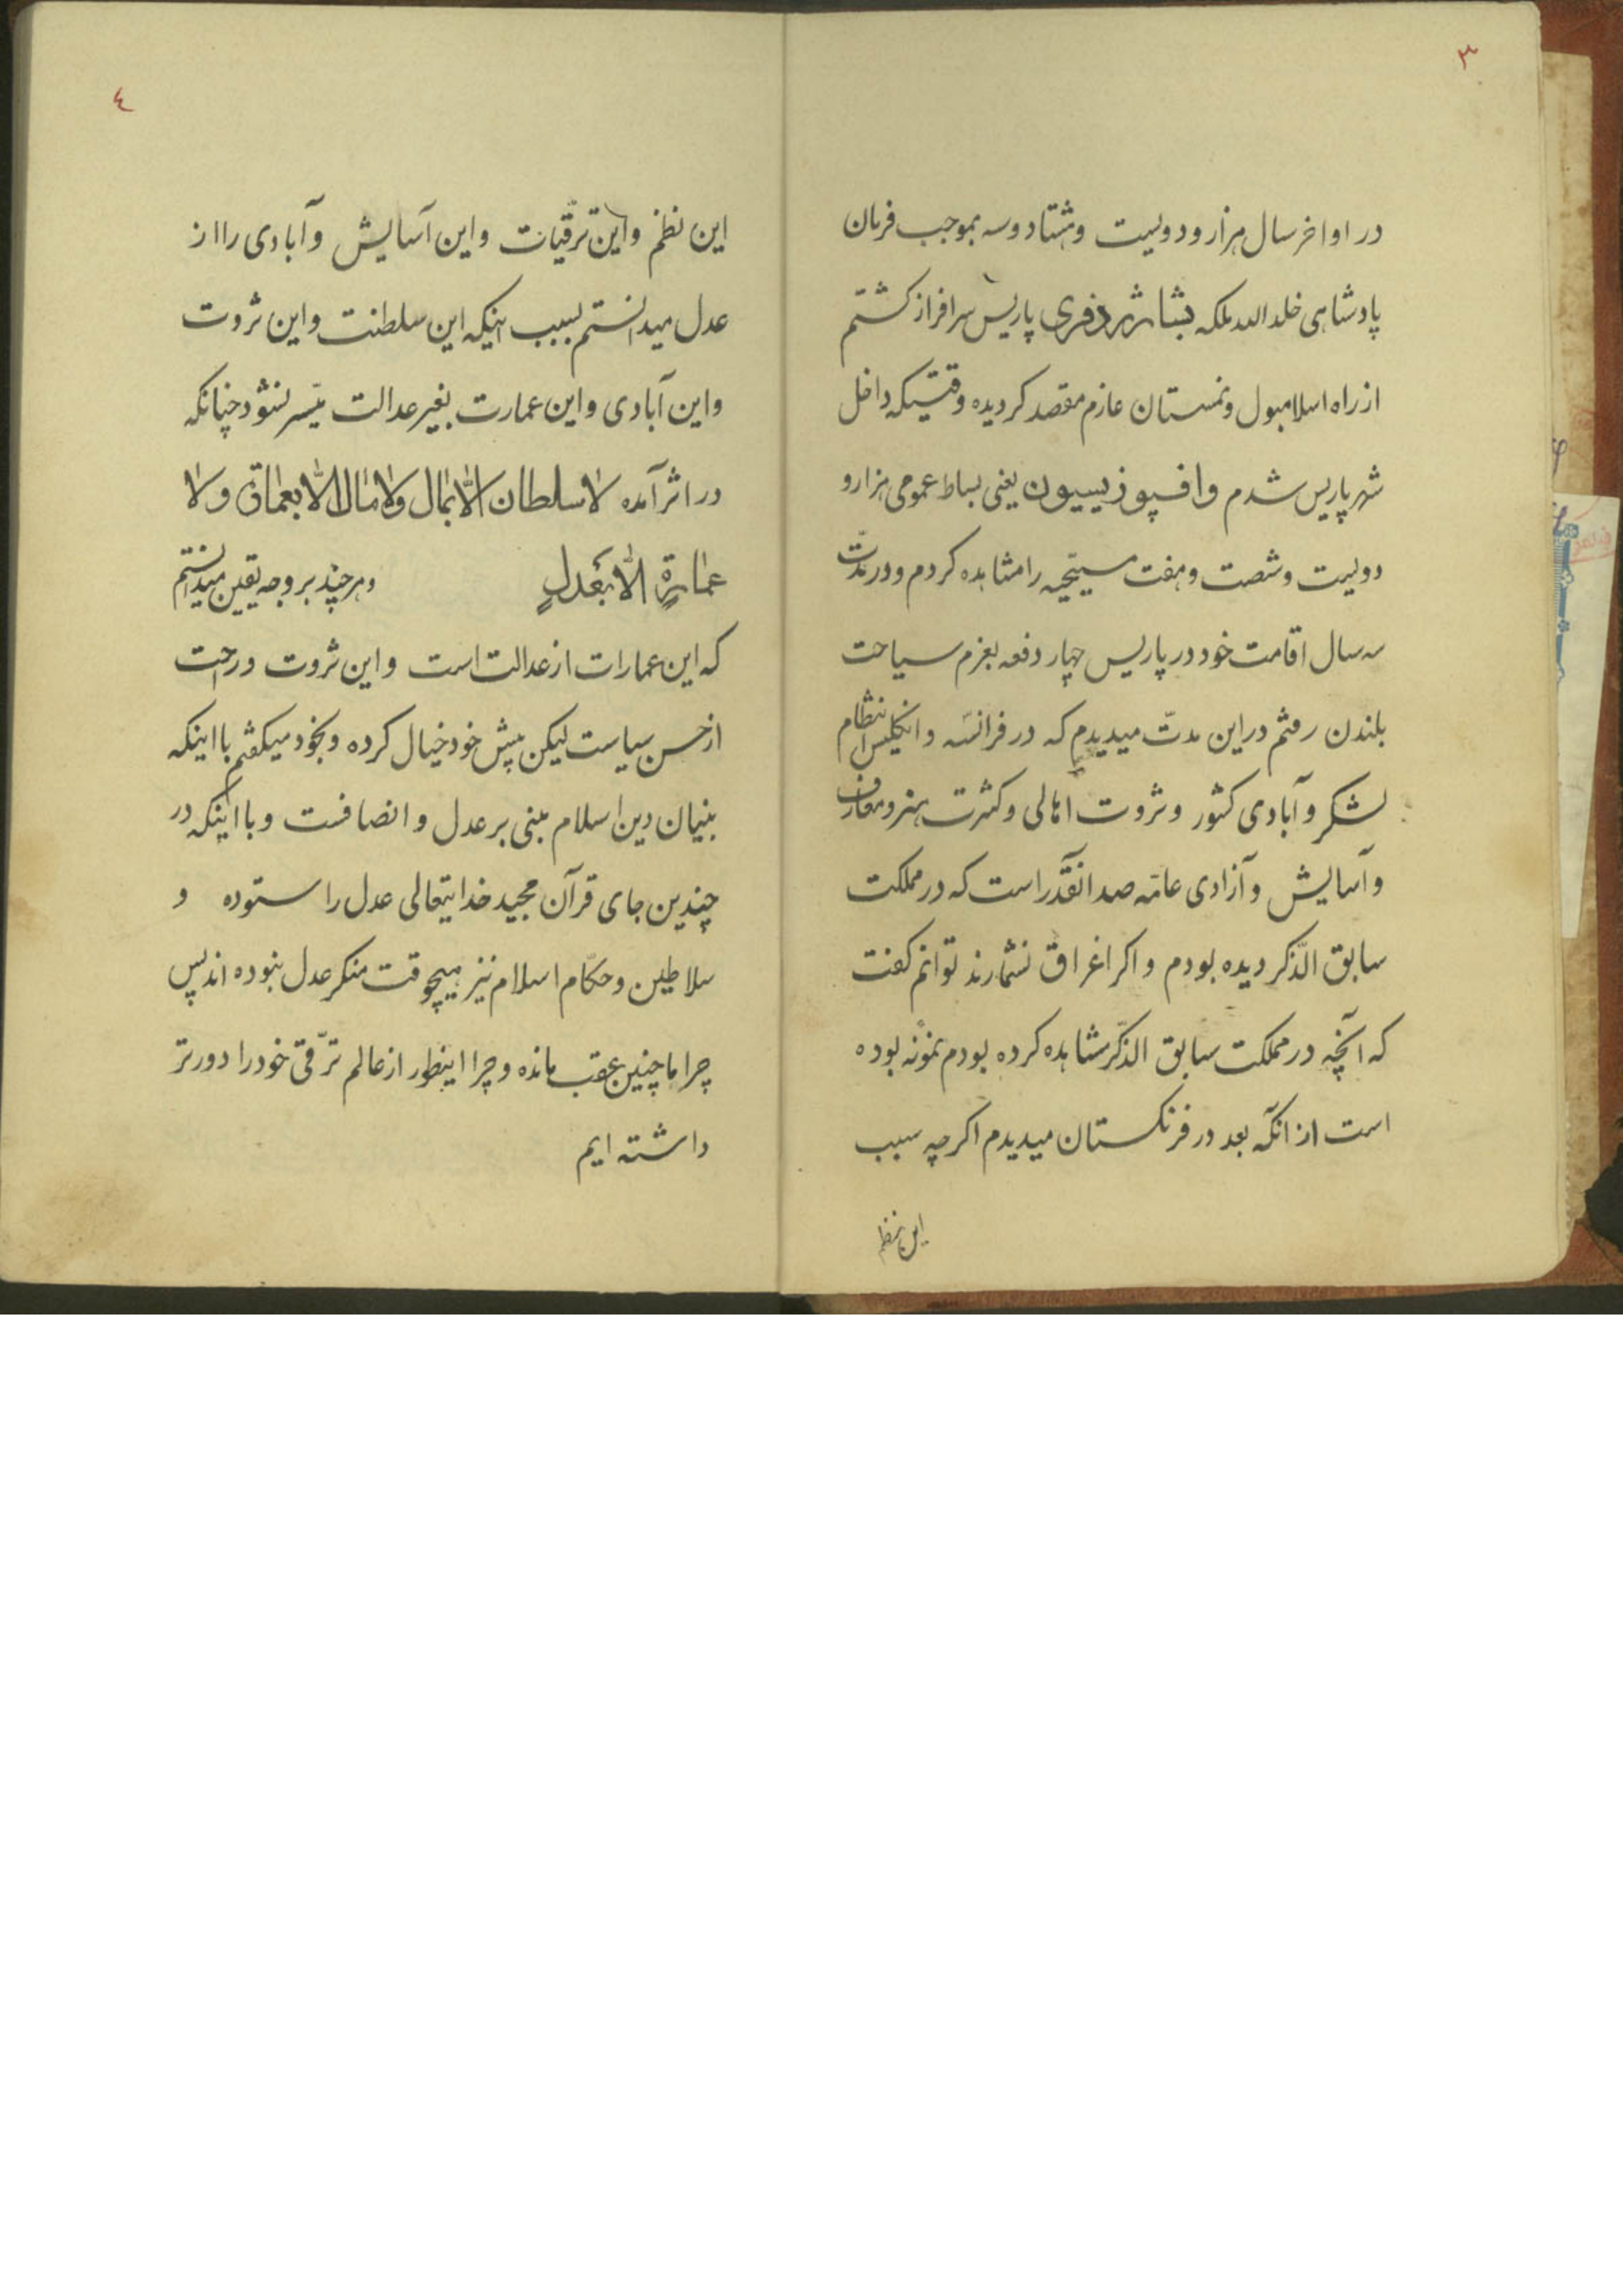 ۳
در اواخر سال هزار و دویست و هشتاد و سه بموجب فرمان
پادشاهی خلد الله ملکه بشارژدفری پاریس سرافراز کشتم
از راه اسلامبول و نمستان عازم مقصد کردیده وقتیکه داخل
شهر پاریس شدم و افسپوزیسیون یعنی بساط عمومی هزار و
دویست و شصت و هفت مسیحیه را مشاهده کردم و در مدّت
سه سال اقامت خود در پاریس چهار دفعه بعزم سیاحت
بلندن رفتم در این مدّت میدیدم که در فرانسه و انکلیس انتظام
لشکر و آبادی کشور و ثروت اهالی و کثرت هنر و معارف
و آسایش و آزادی عامّه صد آنقدر است که در مملکت
سابق الذّکر دیده بودم و اکر اغراق نشمارند توانم کفت
که آنچه در مملکت سابق الذّکر مشاهده کرده بودم نمونه بوده
است از آنکه بعد در فرنکستان میدیدم اکرچه سبب
این نظم
٤
این نظم و این ترقّیات و این آسایش و آبادی را از
عدل میدانستم بسبب اینکه این سلطنت و این ثروت
و این آبادی و این عمارت بغیر عدالت میّسر نشود چنانکه
در اثر آمده لا سلطان الّا بمال ولا مال الّا بعمارة ولا
عمارة الّا بعدل و هر چند بر وجه یقین میدانستم
که این عمارات از عدالت است و این ثروت و راحت
از حسن سیاست لیکن پیش خود خیال کرده و بخود میکفتم با اینکه
بنیان دین اسلام مبنی بر عدل و انصافست و با اینکه در
چندین جای قرآن مجید خدایتعالی عدل را ستوده و
سلاطین و حکّام اسلام نیز هیچوقت منکر عدل نبوده اند پس
چرا ما چنین عقب مانده و چرا اینطور از عالم ترّقی خود را دورتر
داشته ایم